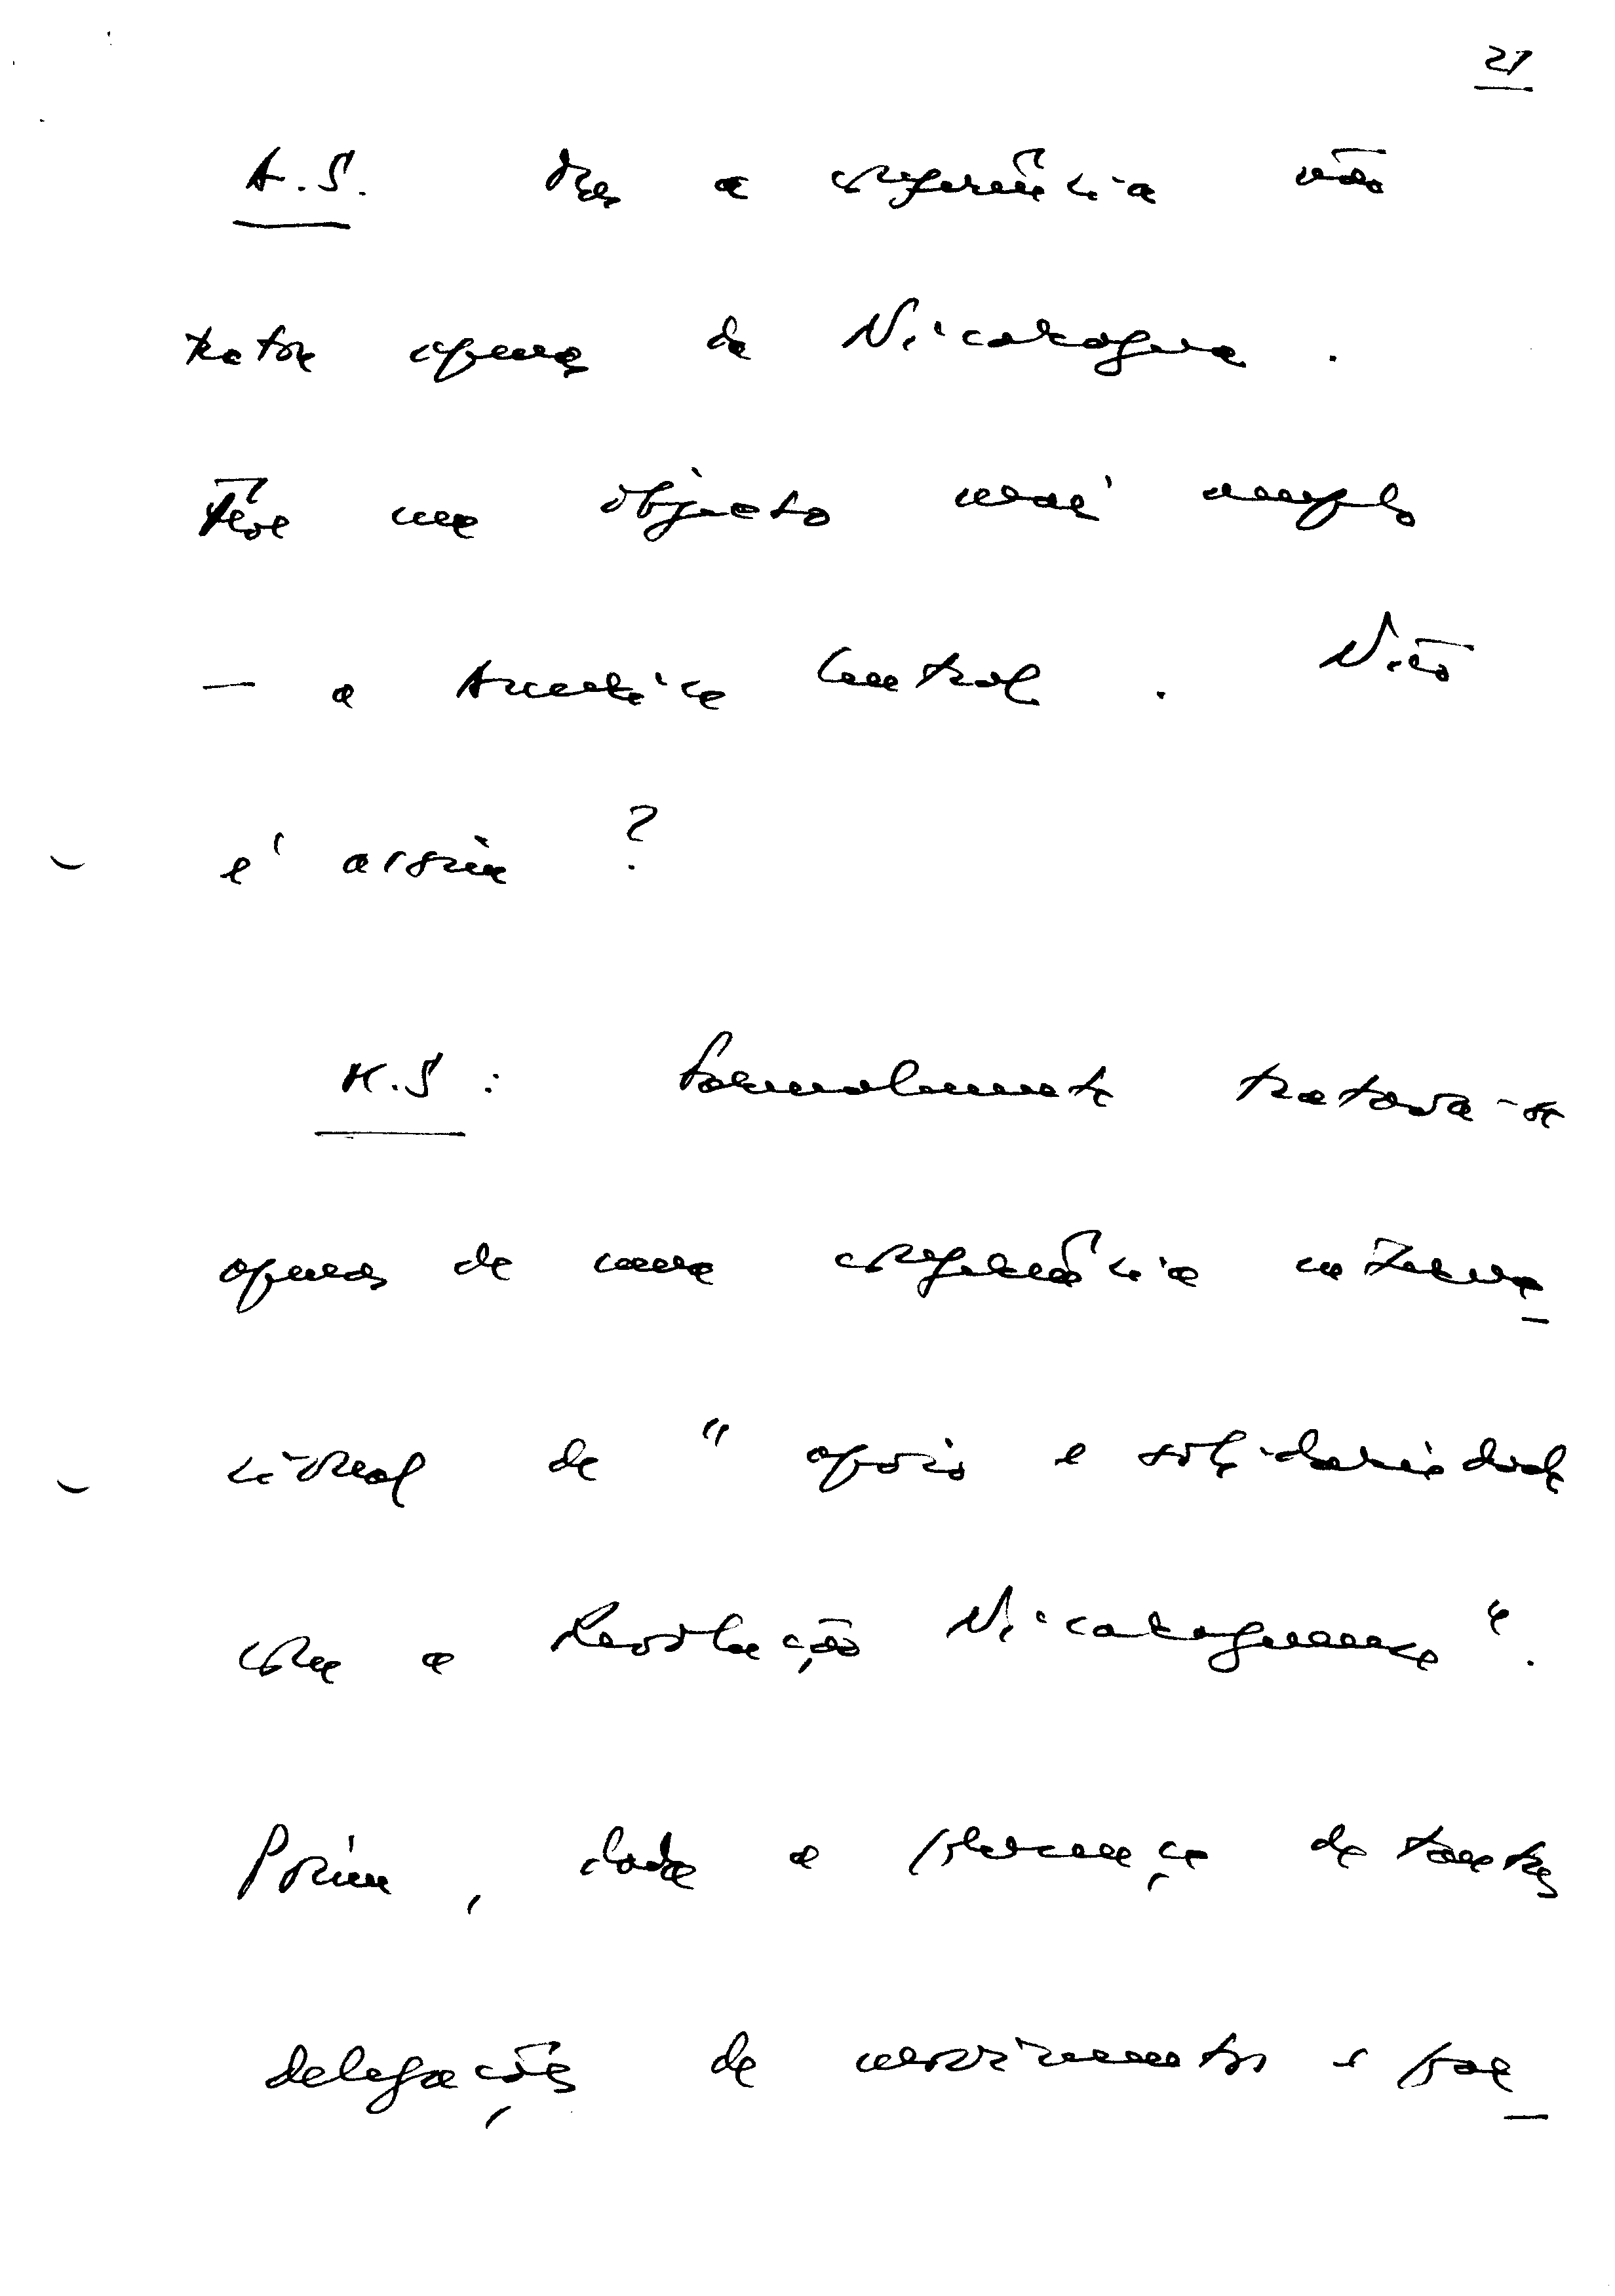 21
A.S. Mas a conferência não
tratou apenas da Nicarágua.
Teve um objecto mais amplo
— a América Central. Não
é assim?
M.S: Formalmente tratava-se
apenas de uma conferência interna_
cional de "apoio e solidariedade
com a Revolução Nicaraguense".
Porém, dada a presença de tantas
delegações de movimentos e par_